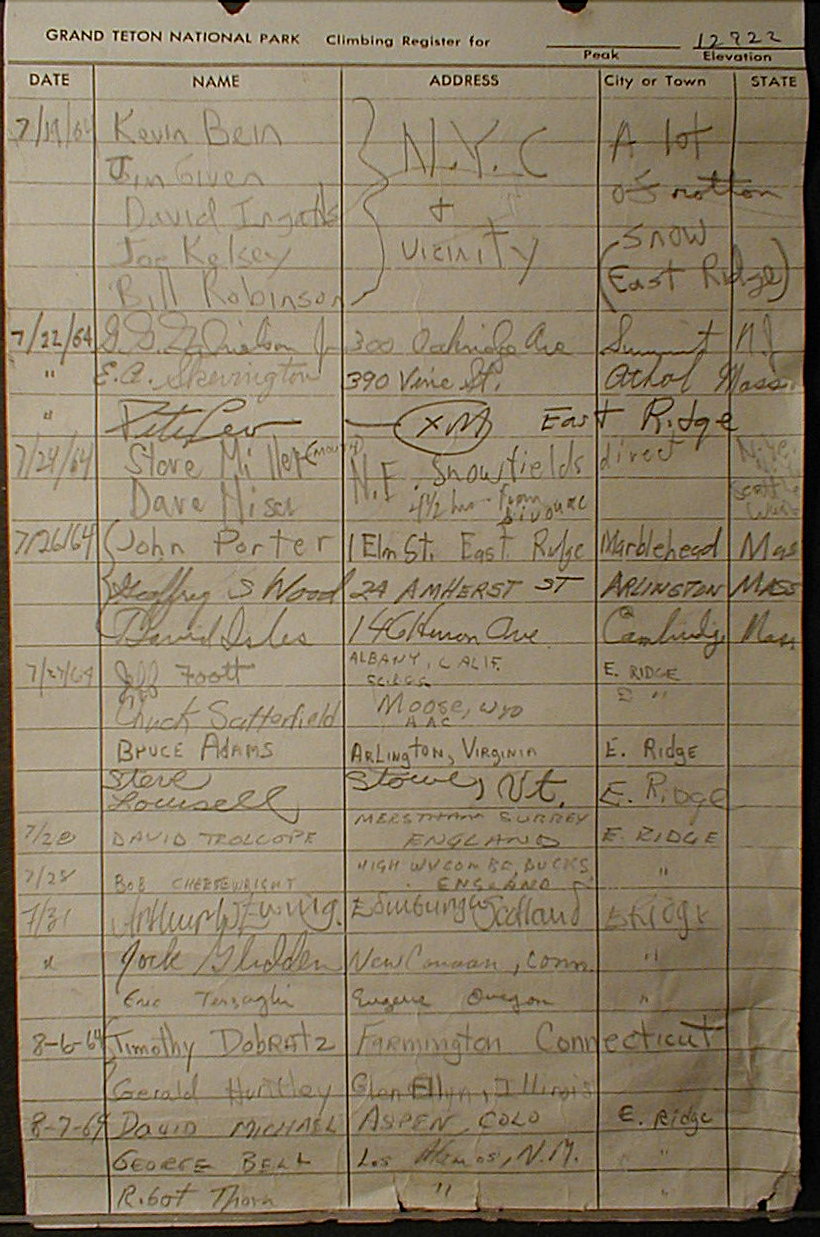 GRAND TETON NATIONAL PARK Climbing Register for 12922
Peak Elevation
DATE NAME ADDRESS City or Town STATE
7/19/64 Kevin Bein } N.Y.C A lot
Jim Given of rotton
David Ingalls + snow
Joe Kelsey Vicinity (East Ridge)
Bill Robinson
7/22/64 Jr 300 Oakridge Ave Summit N.J
" E.A. Skevington 390 Vine St. Athol Mass.
" Pete Lev — XM East Ridge
7/24/64 Steve Miller (MOUTH) N.E. Snowfields direct
Dave 4½ hrs. from bivouac Seattle
7/26/64 John Porter 1 Elm St. East Ridge Marblehead Mas
Geoffrey S Wood 24 AMHERST ST ARLINGTON MASS
David Isles 146 Huron Ave Cambridge Mass
7/27/64 Jeff Foott ALBANY, CALIF. E. RIDGE
Chuck Satterfield Moose, WYO "
AAC
BRUCE ADAMS ARLINGTON, VIRGINIA E. Ridge
Steve Stowe, Vt. E. Ridge
7/28 DAVID TROLLOPE MERSTHAM SURREY ENGLAND E. RIDGE
7/28 BOB CHEESEWRIGHT HIGH WYCOMBE, BUCKS. ENGLAND "
7/31 Arthur W Ewing. Edinburgh Scotland E Ridge
" Jock Glidden New Canaan, Conn. "
Eric Eugene Oregon "
8-6-64 Timothy DOBRATZ Farmington Connecticut
Gerald Huntley Glen Ellyn, Illinois
8-7-64 DAVID MICHAEL ASPEN, COLO E. Ridge
GEORGE BELL Los Alamos, N.M. "
Thorn " "